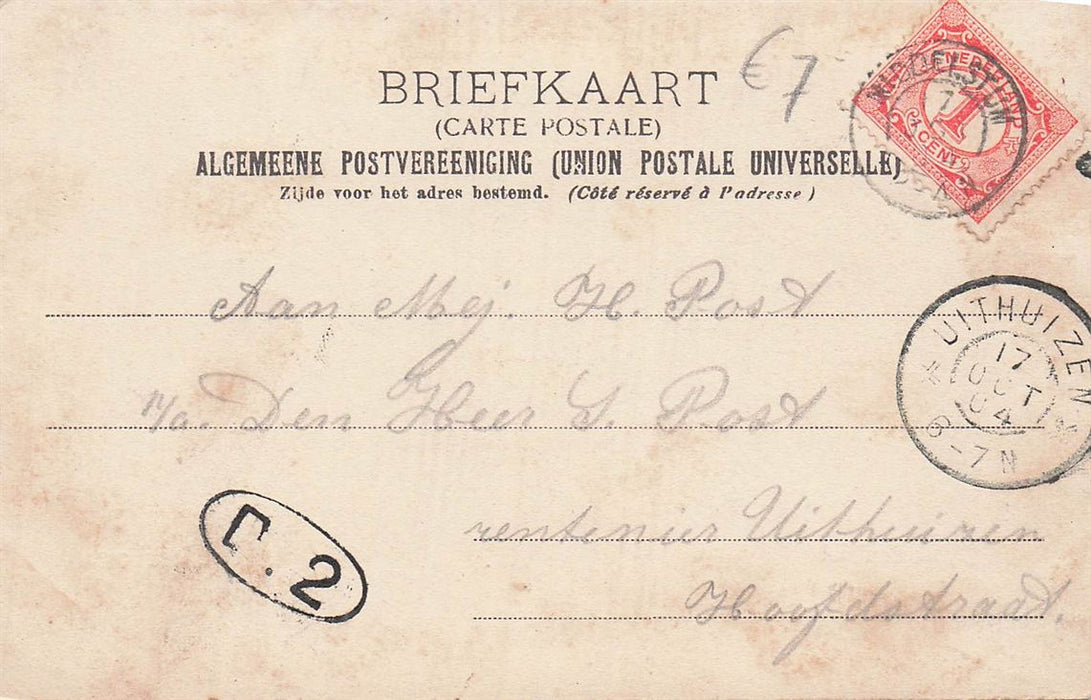 BRIEFKAART
€7
(CARTE POSTALE)
ALGEMEENE POSTVEREENIGING (UNION POSTALE UNIVERSELLE)
Zijde voor het adres bestemd. (Côté réservé à l'adresse)
NEDERLAND
1
CENT
MIDDELSTUM
Aan Mej. H. Post
p/a. Den Heer S. Post
rentenier Uithuizen
Hoofdstraat.
UITHUIZEN
17
OCT
04
6-7N
2